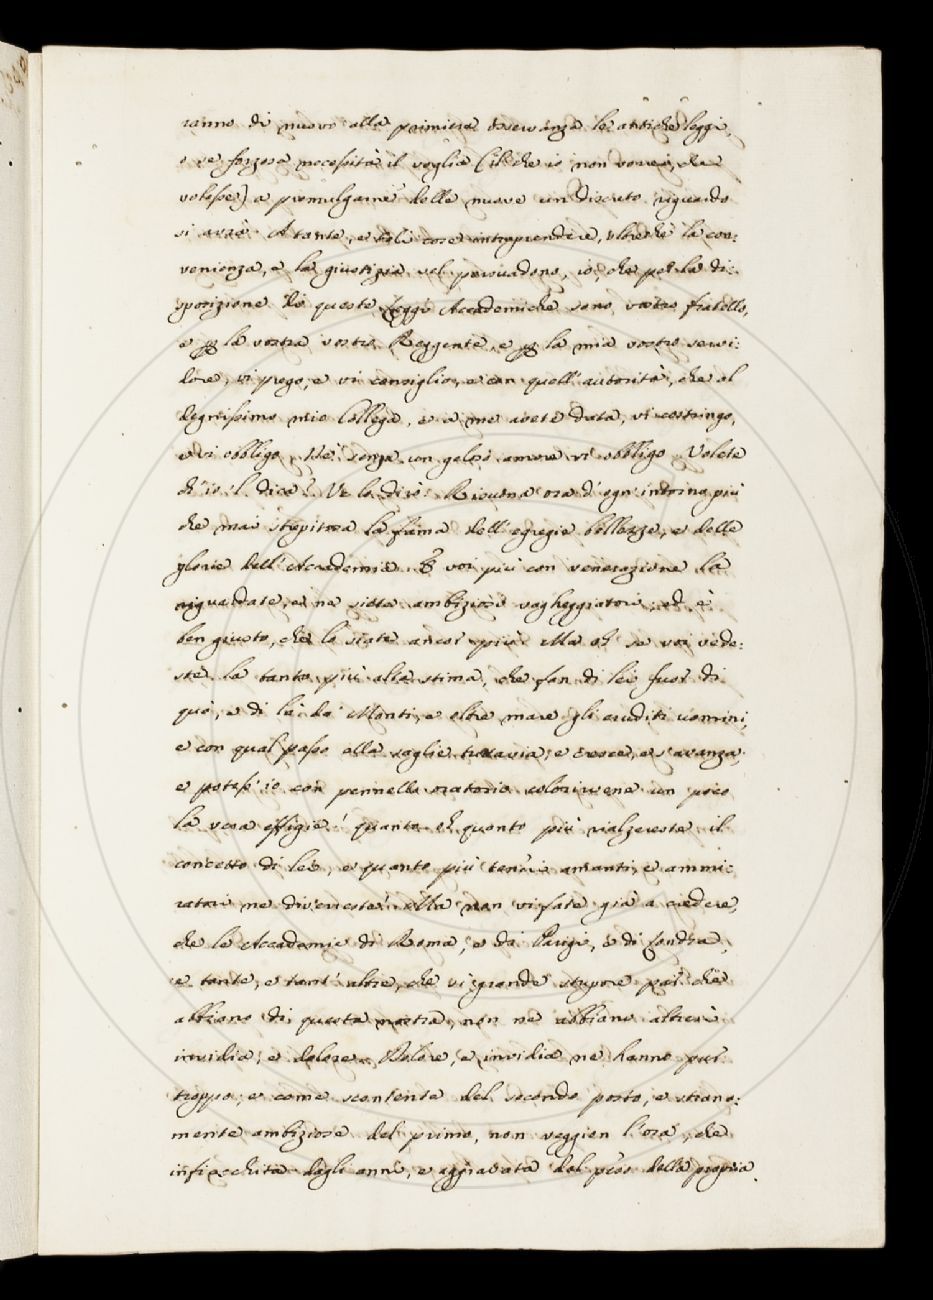 ranno di nuovo alla primiera osservanza le antiche leggi,
o se forzosa necessità il voglia (il che io non vorrei, che
volesse) a promulgarne delle nuove un discreto riguardo
si avrà. A tante, e tali cose intraprendere, oltreché la con:
venienza, e la giustizia vel persuadono, io, che per la di:
sposizione di queste Leggi Accademiche sono vostro fratello,
e per la vostra vostro Reggente, e per la mia vostro servi:
dore, vi prego, e vi consiglio, e con quell'autorità, che al
degnissimo mio Collega, e a me avete data, vi costringo,
e vi obbligo. Né senza un geloso amore vi obbligo. Volete
ch'io 'l dica? Ve lo dirò. Risuona ora d'ogn'intorno più
che mai strepitosa la fama dell'egregie bellezze, e delle
glorie dell'Accademia. E voi più con venerazione la
riguardate, e ne siete ambiziosi vagheggiatori; ed è
ben giusto, che lo siate ancor più. Ma oh se voi vede:
ste la tanto più alta stima, che fan di lei fuor di
quà, e di là da' Monti, e oltre mare gli eruditi uomini,
e con qual passo ella saglie tuttavia, e cresce, e s'avanza,
e potess'io con pennello oratorio colorirvene un poco
la vera effigie! quanto oh quanto più rialzereste il
concetto di lei, e quanto più teneri amanti, e ammi:
ratori ne diverreste! Ma non vi fate già a credere,
che le Accademie di Roma, e di Parigi, e di Londra,
e tante, e tant'altre, che vi grande stupore par che
abbiano di questa nostra, non ne abbiano altresì
invidia, e dolore. Dolore, e invidia ne hanno pur
troppo, e come scontente del secondo posto, e strana:
mente ambiziose del primo, non veggion l'ora, che
infiacchita dagli anni, e aggravata dal peso della propria